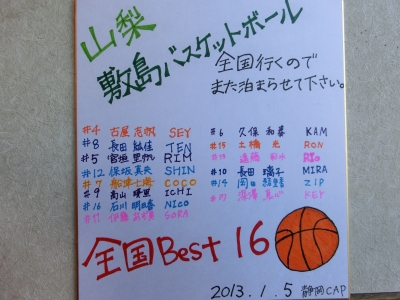 山梨
敷島バスケットボール
全国行くので
また泊まらせて下さい。
#4 古屋 SEY
#8 長田 TEN
#5 宮垣 RIM
#12 保坂 真央 SHIN
#7 船津 七海 COCO
#9 高山 ICHI
#16 石川 明日香 NICO
#11 伊藤 SORA
#6 久保 和香 KAM
#15 土橋 光 RON
#13 遠藤 RIO
#10 長田 瑞子 MIRA
#14 岡田 ZIP
KEY
全国Best 16
2013.1.5 静岡CAP